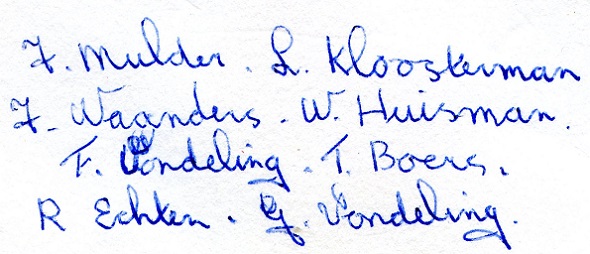 F. Mulder. L. Kloosterman
F. Waanders. W. Huisman.
F. Vondeling. T. Boers.
R Echten. G. Vondeling.